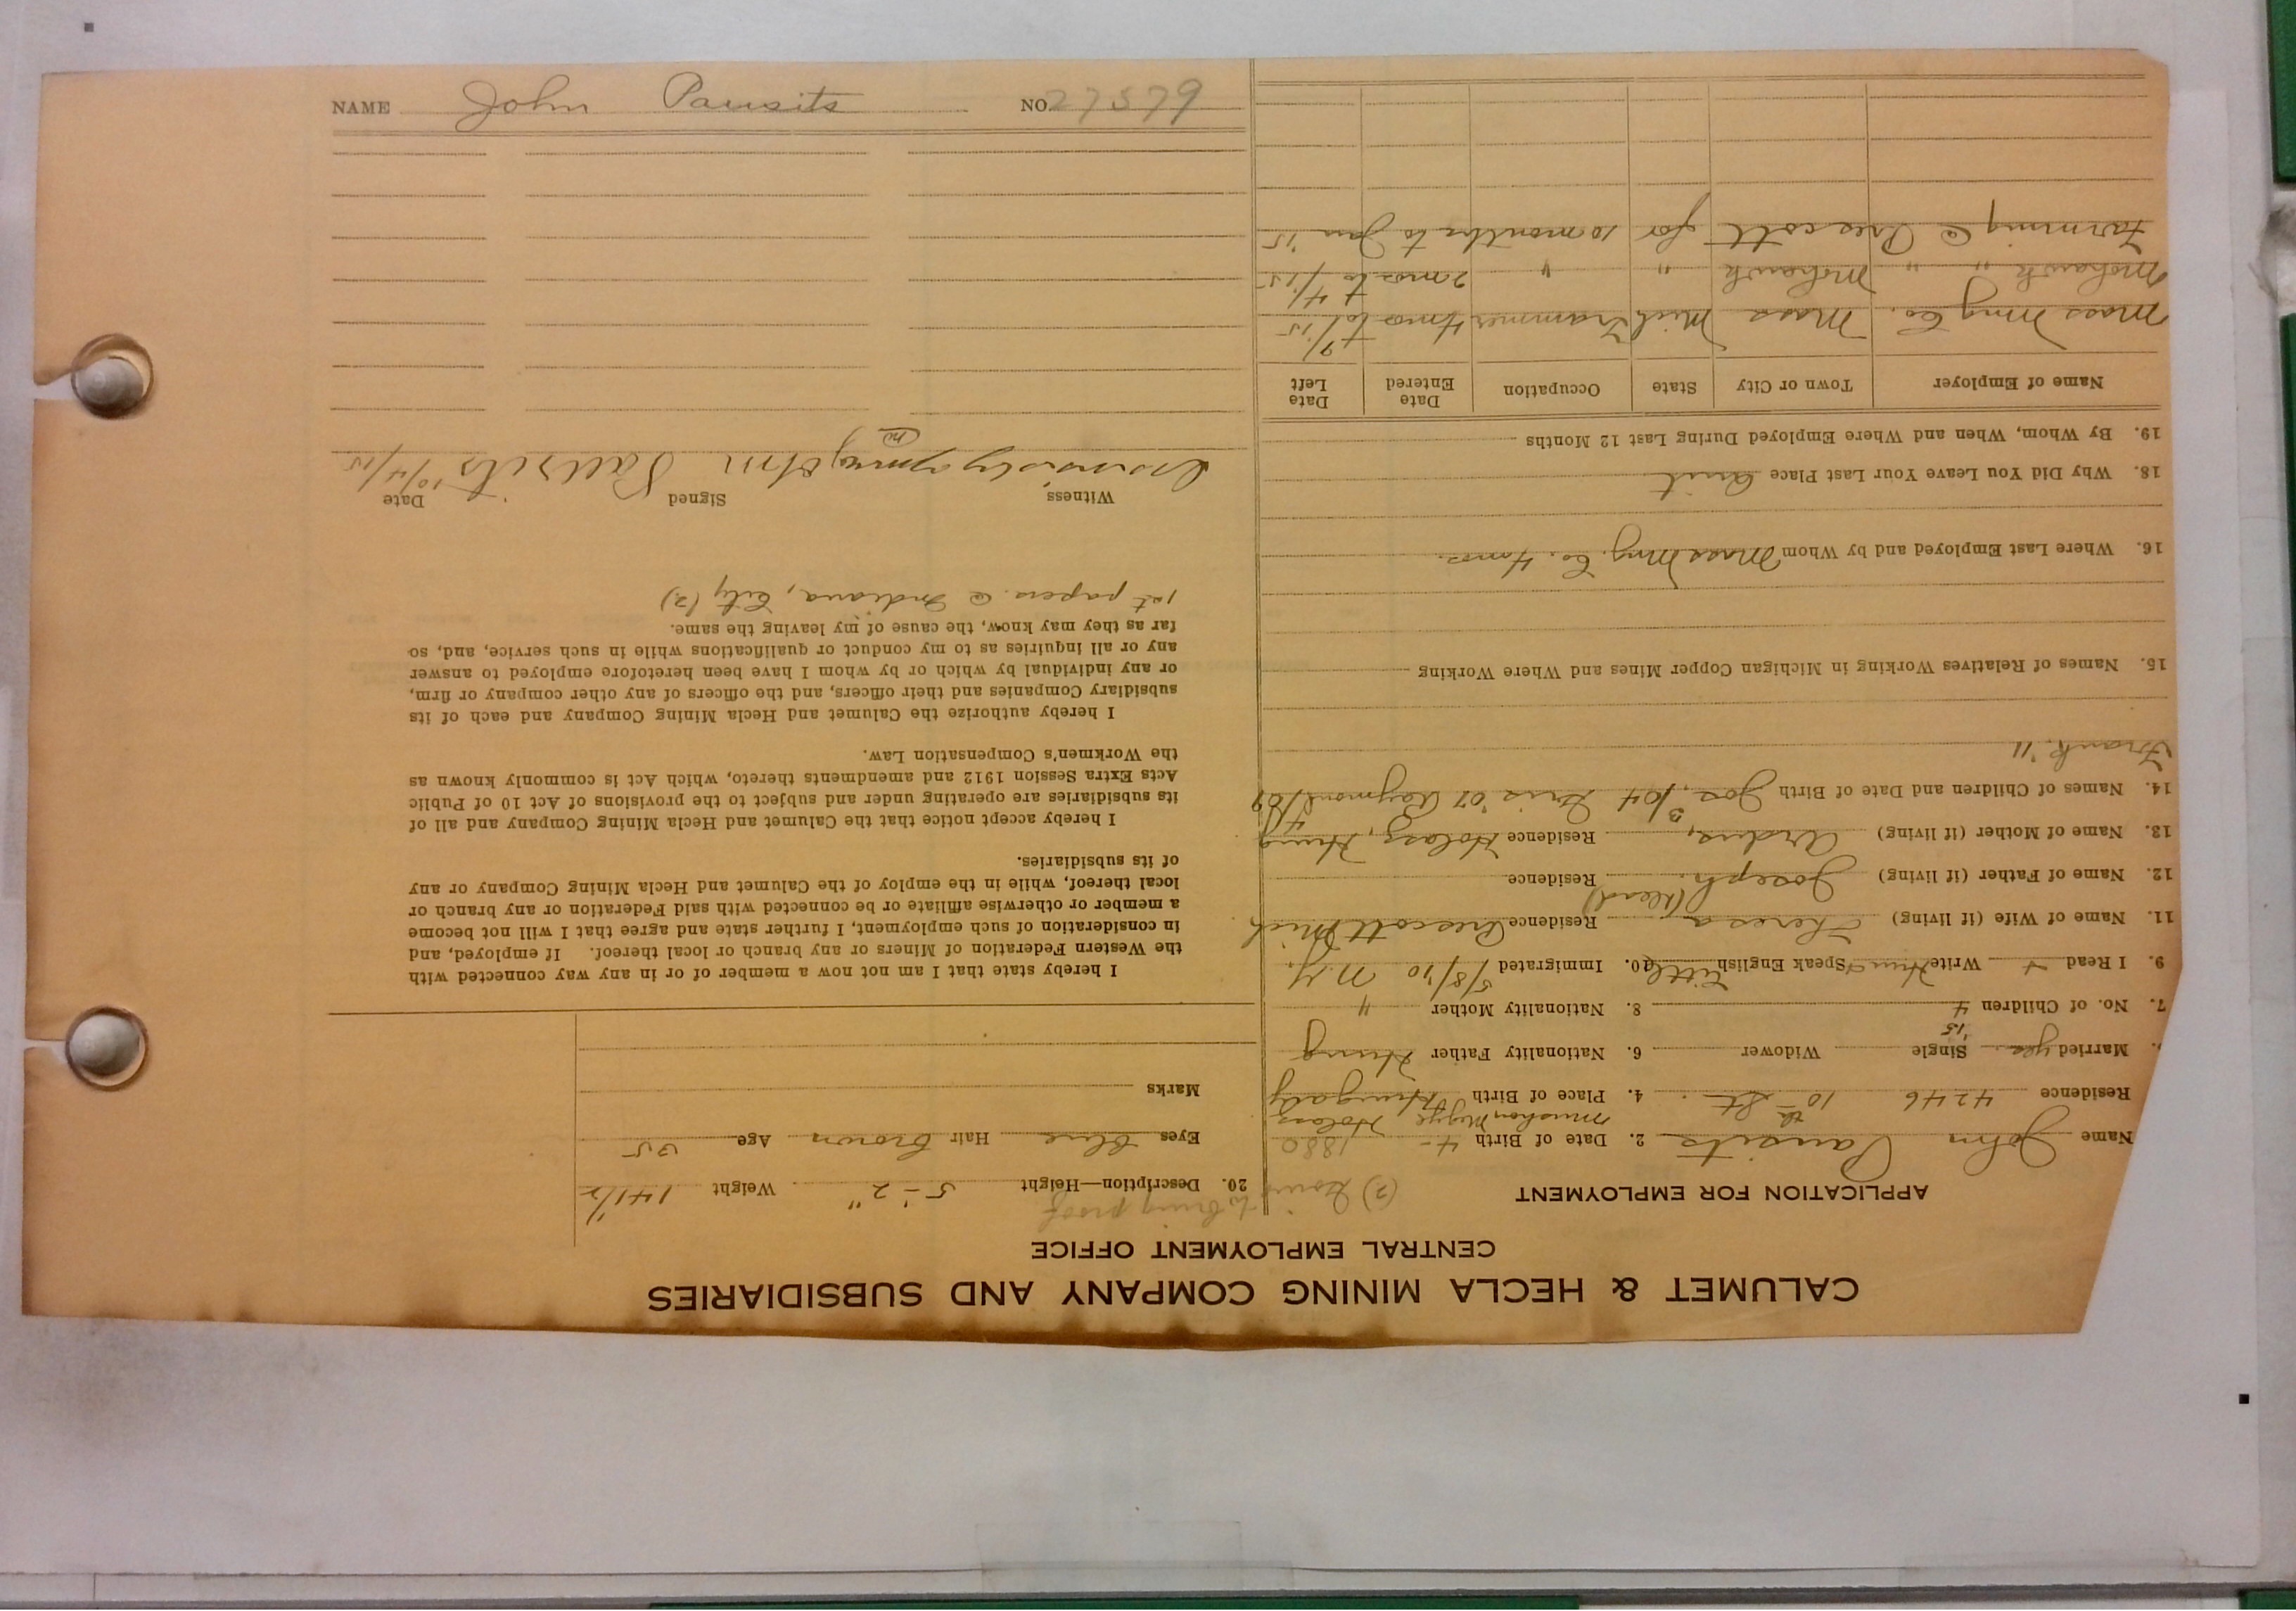 NAME John Pausits NO. 27579
CALUMET & HECLA MINING COMPANY AND SUBSIDIARIES
CENTRAL EMPLOYMENT OFFICE
APPLICATION FOR EMPLOYMENT
(2) to bring proof
Name John Pausits 2. Date of Birth 4- 1880
Residence 4246 10th St. 4. Place of Birth Hungary
Married yes Single Widower 6. Nationality Father Hung
'15
7. No. of Children 4 8. Nationality Mother "
9. I Read + Write Hung Speak English Little 10. Immigrated 5/8/10 N.Y.
11. Name of Wife (if living) Theresa Residence Prescott Mich
12. Name of Father (if living) Joseph (dead) Residence
13. Name of Mother (if living) Residence Holasz, Hung
14. Names of Children and Date of Birth Jos, 3/04 '07 Raymond 4/09
Frank '11
15. Names of Relatives Working in Michigan Copper Mines and Where Working
16. Where Last Employed and by Whom Mass Mng. Co. 4 mos.
18. Why Did You Leave Your Last Place Quit
19. By Whom, When and Where Employed During Last 12 Months
Name of Employer Town or City State Occupation Date Entered Date Left
Mass Mng Co. Mass Mich Trammer 4 mos to 9/15
Mohawk " " Mohawk " " 2 mos to 4/15
Farming @ Prescott for 10 months to Jan '15
20. Description—Height 5-2" Weight 141 1/2
Eyes Blue Hair Brown Age 35
Marks
I hereby state that I am not now a member of or in any way connected with
the Western Federation of Miners or any branch or local thereof. If employed, and
in consideration of such employment, I further state and agree that I will not become
a member or otherwise affiliate or be connected with said Federation or any branch or
local thereof, while in the employ of the Calumet and Hecla Mining Company or any
of its subsidiaries.
I hereby accept notice that the Calumet and Hecla Mining Company and all of
its subsidiaries are operating under and subject to the provisions of Act 10 of Public
Acts Extra Session 1912 and amendments thereto, which Act is commonly known as
the Workmen's Compensation Law.
I hereby authorize the Calumet and Hecla Mining Company and each of its
subsidiary Companies and their officers, and the officers of any other company or firm,
or any individual by which or by whom I have been heretofore employed to answer
any or all inquiries as to my conduct or qualifications while in such service, and, so
far as they may know, the cause of my leaving the same.
1st papers @ Indiana, City (2)
Witness Signed Date
Pausits 10/4/15